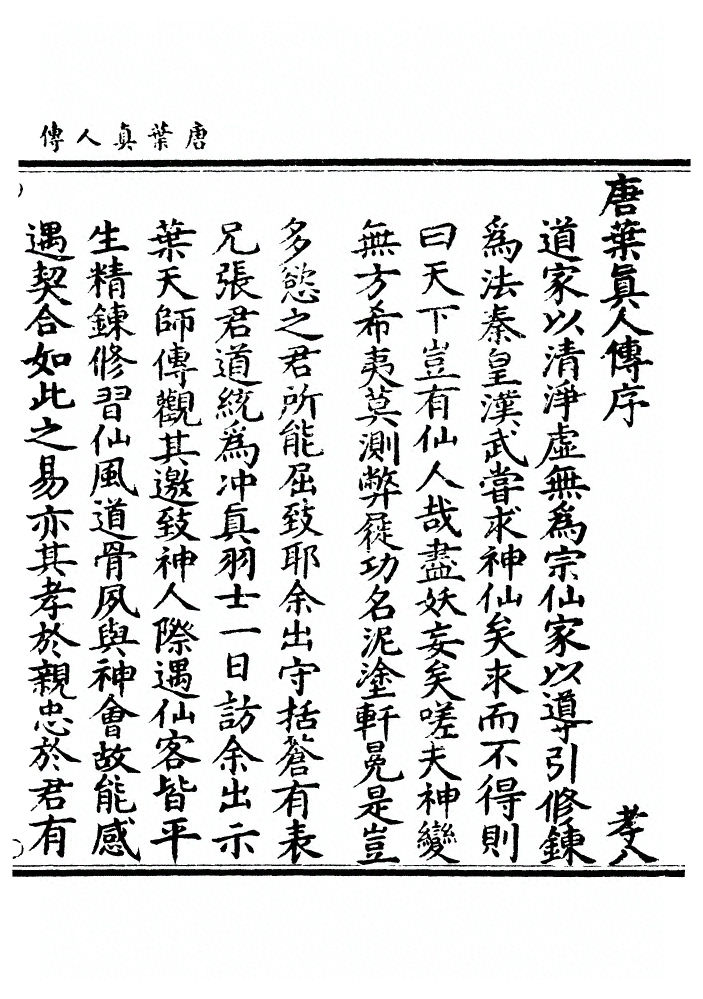 唐葉真人傳
唐葉眞人傳序
孝八
道家以清淨虛無為宗仙家以導引修鍊
為法秦皇漢武嘗求神仙矣求而不得則
曰天下豈有仙人哉盡妖妄矣嗟夫神變
無方希夷莫測弊屣功名泥塗軒冕是豈
多慾之君所能屈致耶余出守括蒼有表
兄張君道統為冲真羽士一日訪余出示
葉天師傳觀其邀致神人際遇仙客皆平
生精鍊修習仙風道骨夙與神會故能感
遇契合如此之易亦其孝於親忠於君有